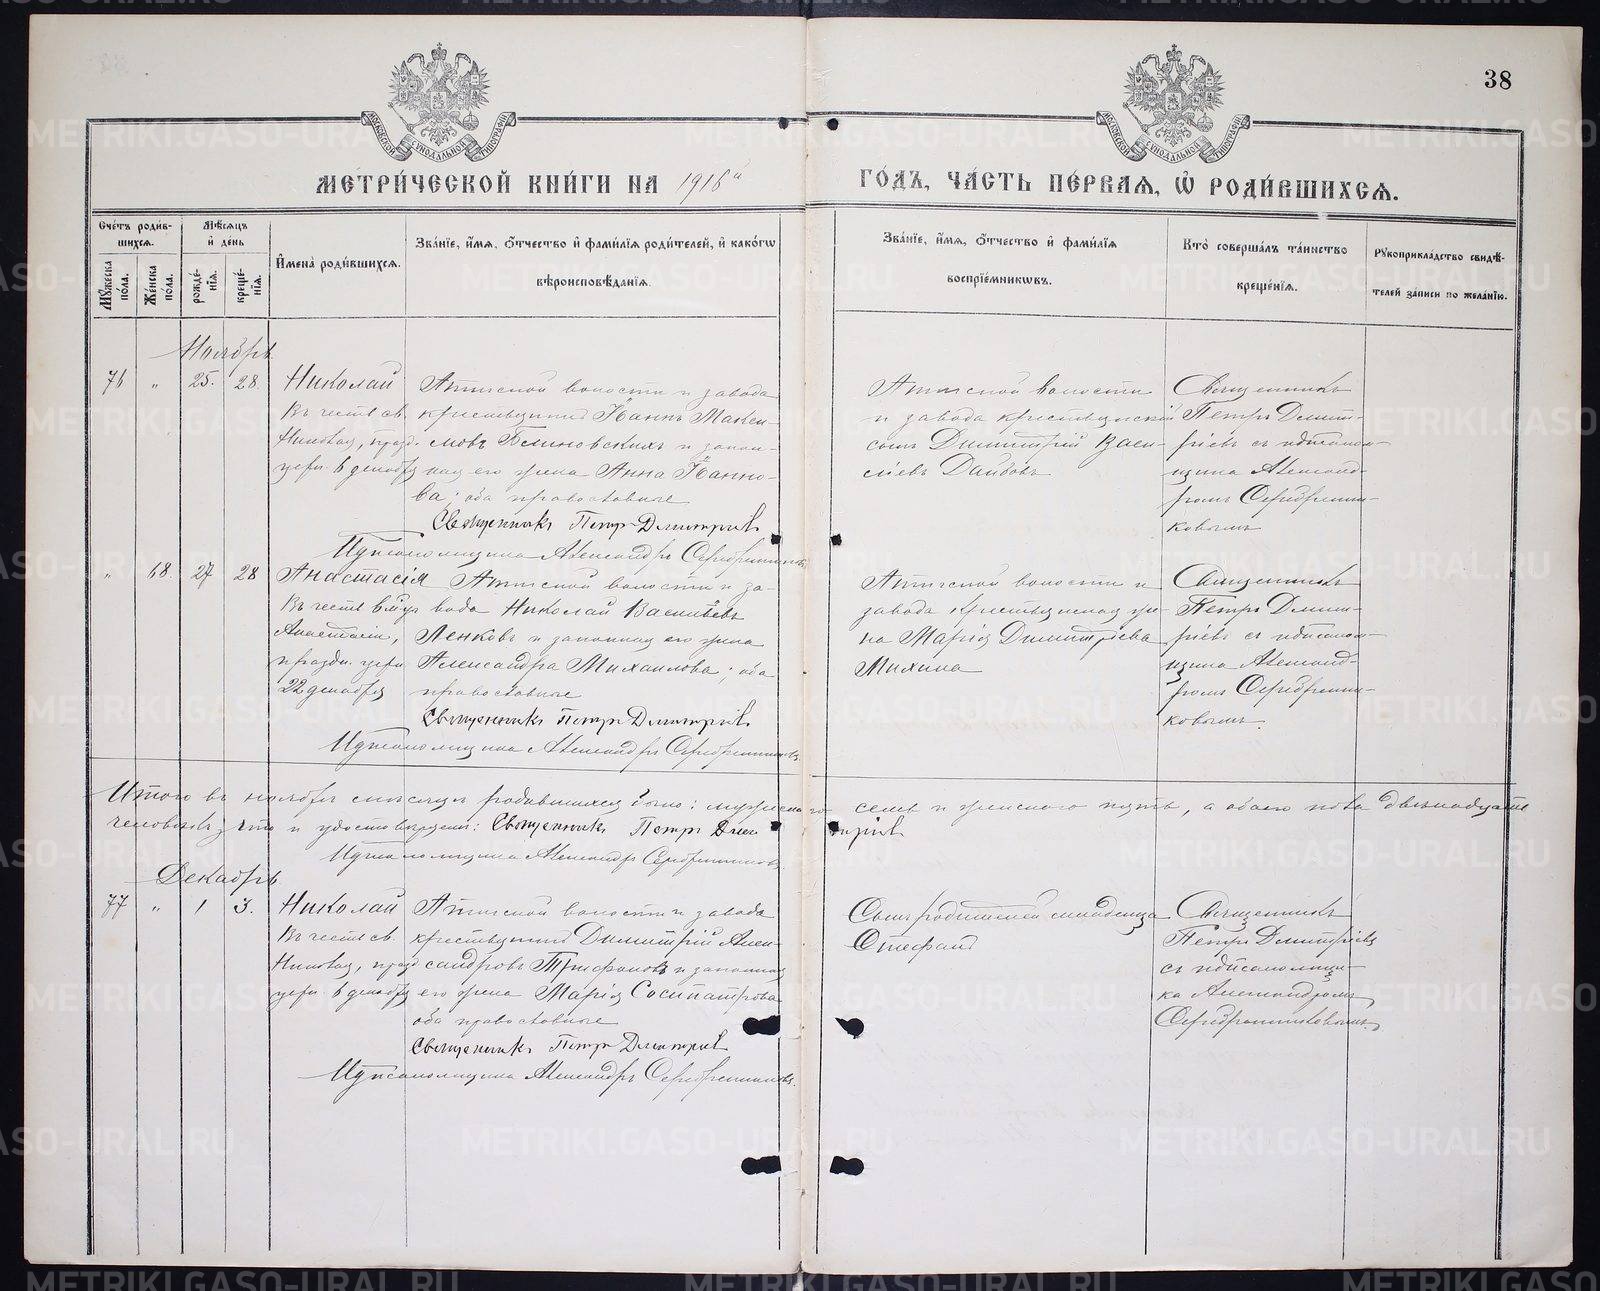 38
МЕТРИ́ЧЕСКОЙ КНИ́ГИ НА 1916й ГОДЪ, ЧА́СТЬ ПЕ́РВАѦ, Ѡ҆ РОДИ́ВШИХСѦ.
Сче́тъ роди́в-
шихсѧ.
Мꙋ́жеска по́ла.
Же́нска по́ла.
Мѣ́сѧцъ
и҆ де́нь
рожде́-
нїѧ.
креще́-
нїѧ.
И҆мена̀ роди́вшихсѧ.
Зва́нїе, и҆́мѧ, ѻ҆́тчество и҆ фами́лїѧ роди́телей, и҆ како́гѡ
вѣроисповѣ́данїѧ.
Зва́нїе, и҆́мѧ, ѻ҆́тчество и҆ фами́лїѧ
воспрїе́мникѡвъ.
Кто̀ соверша́лъ та́инство
креще́нїѧ.
Рꙋкоприкла́дство свидѣ́-
телей за́писи по жела́нїю.
Ноябрь
76 " 25. 28.
Николай
въ честь св.
Николая, празд.
церк. 6 декабря
Атигской волости и завода
крестьянинъ Іоаннъ Макси-
мовъ и закон-
ная его жена Анна Іоанно-
ва; оба православные
Священникъ Петръ Димитріевъ
И. д. псаломщика Александръ Серебренниковъ
Атигской волости
и завода крестьянскій
сынъ Димитрій Васи-
ліевъ
Священникъ
Петръ Димит-
ріевъ съ и. д. псалом-
щика Александ-
ромъ Серебренни-
ковымъ
" 68. 27 28
Анастасія
въ честь в. муч.
Анастасіи,
праздн. церк.
22 декабря
Атигской волости и за-
вода Николай Васильевъ
Ленковъ и законная его жена
Александра Михаилова; оба
православные
Священникъ Петръ Димитріевъ
И. д. псаломщика Александръ Серебренниковъ
Атигской волости и
завода крестьянская же-
на Марія Димитріева
Михина
Священникъ
Петръ Димит-
ріевъ съ и. д. псалом-
щика Александ-
ромъ Серебренни-
ковымъ.
Итого въ ноябрѣ мѣсяцѣ родившихся было: мужескаго семь и женского пять, а обоего пола двѣнадцать
человѣкъ; что и удостовѣряемъ: Священникъ Петръ Димитріевъ
И. д. псаломщика Александръ Серебренниковъ
Декабрь
77 " 1 3.
Николай
въ честь св.
Николая, празд
церк. 6 декабря
Атигской волости и завода
крестьянинъ Димитрій Алек-
сандровъ Трифановъ и законная
его жена Марія Сосипатрова
оба православные
Священникъ Петръ Димитріевъ
И. д. псаломщика Александръ Серебренниковъ.
Сынъ родителей младенца
Стефанъ
Священникъ
Петръ Димитріевъ
съ и. д. псаломщи-
ка Александромъ
Серебренниковымъ
METRIKI.GASO-URAL.RU